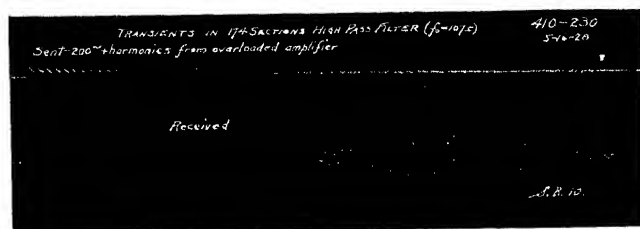 TRANSIENTS IN 174 SECTIONS HIGH PASS FILTER 410-230
Sent-200~+harmonics from overloaded amplifier
Received